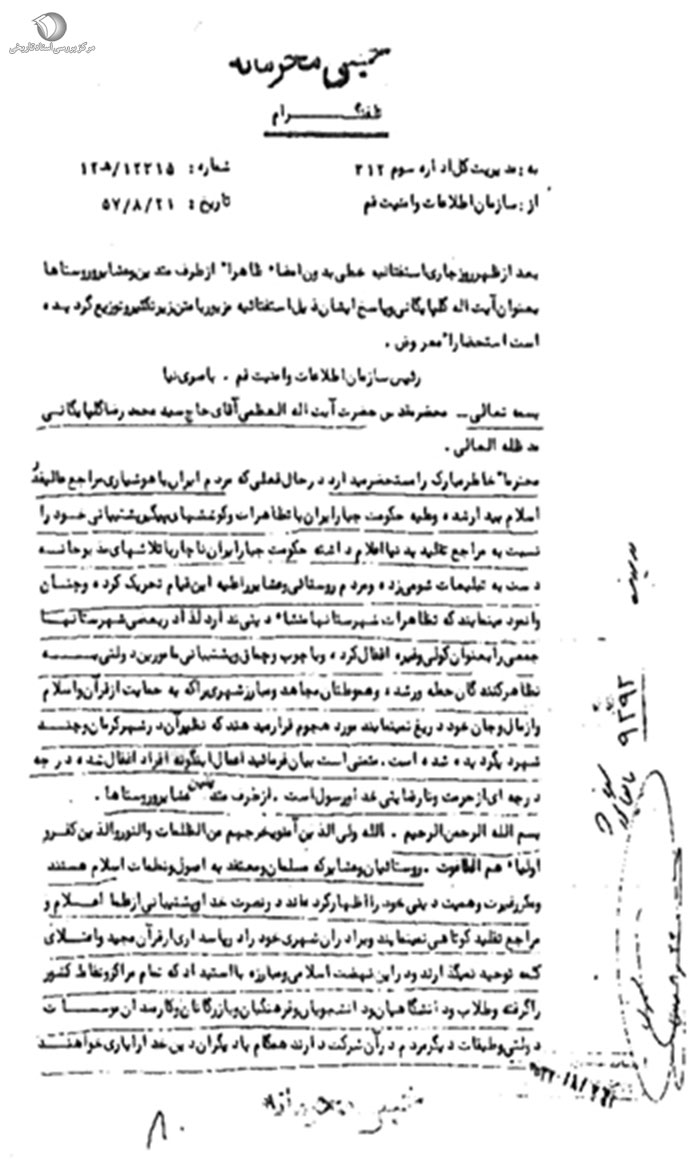 مرکز بررسی اسناد تاریخی
خیلی محرمانه
تلفنگرام
به: مدیریت کل اداره سوم ۳۱۲ شماره: ۱۲۲۱۵/ه‍۱۲
از: سازمان اطلاعات و امنیت قم تاریخ: ۵۷/۸/۲۱
بعد از ظهر روز جاری استفتائیه خطی بدون امضاء ظاهرا" از طرف متدینین عشایر و روستاها
بعنوان آیت اله گلپایگانی و پاسخ ایشان ذیل استفتائیه مزبور با متن زیر تکثیر و توزیع گردیده
است استحضارا" معروض.
رئیس سازمان اطلاعات و امنیت قم.
بسمه تعالی _ محضر مقدس حضرت آیت اله العظمی آقای حاج سید محمد رضا گلپایگانی
مد ظله العالی.
محترما" خاطر مبارک را مستحضر میدارد در حال فعلی که مردم ایران با هوشیاری مراجع عالیقدر
اسلام بیدار شده و علیه حکومت جبار ایران با تظاهرات و کوششهای پیگیر پشتیبانی خود را
نسبت به مراجع تقلید به دنیا اعلام داشته حکومت جبار ایران ناچار با تلاشهای مذبوحانه
دست به تبلیغات شومی زده و مردم روستائی و عشایر را علیه این قیام تحریک کرده و چنان
وانمود مینمایند که تظاهرات شهرستانها منشاء دینی ندارد لذا در بعضی شهرستانها
جمعی را بعنوان کولی و غیره اغفال کرده و با چوب و چماق و پشتیبانی مامورین دولتی به
تظاهر کنندگان حمله ور شده و هموطنان مجاهد و مبارز شهری را که به حمایت از قرآن و اسلام
و از مال و جان خود دریغ نمینمایند مورد هجوم قرار میدهند که نظیر آن در شهر کرمان و چند
شهر دیگر دیده شده است. متمنی است بیان فرمائید اعمال اینگونه افراد اغفال شده در چه
درجه ای از حرمت و نارضایتی خدا و رسول است. از طرف متدینین عشایر و روستاها.
بسم الله الرحمن الرحیم. الله ولی الذین آمنو یخرجهم من الظلمات والنور و الذین کفرو
اولیاء هم الطاغوت. روستائیان و عشایر که مسلمان و معتقد به اصول و تعلیمات اسلام هستند
و مکرر غیرت و حمیت دینی خود را اظهار کرده اند در نصرت خدا و پشتیبانی از علما اعلام و
مراجع تقلید کوتاهی نمینمایند و برادران شهری خود را در پاسداری از قرآن مجید و اعتلای
کلمه توحید نمیگذارند و در این نهضت اسلامی و مبارزه با استبداد که تمام مراکز و نقاط کشور
را گرفته و طلاب و دانشگاهیان و دانشجویان و فرهنگیان و بازرگانان و کارمندان موسسات
دولتی و طبقات دیگر مردم در آن شرکت دارند همگام با دیگران دین خدا را یاری خواهند
خیلی محرمانه
۹۲۹۲
۸۰